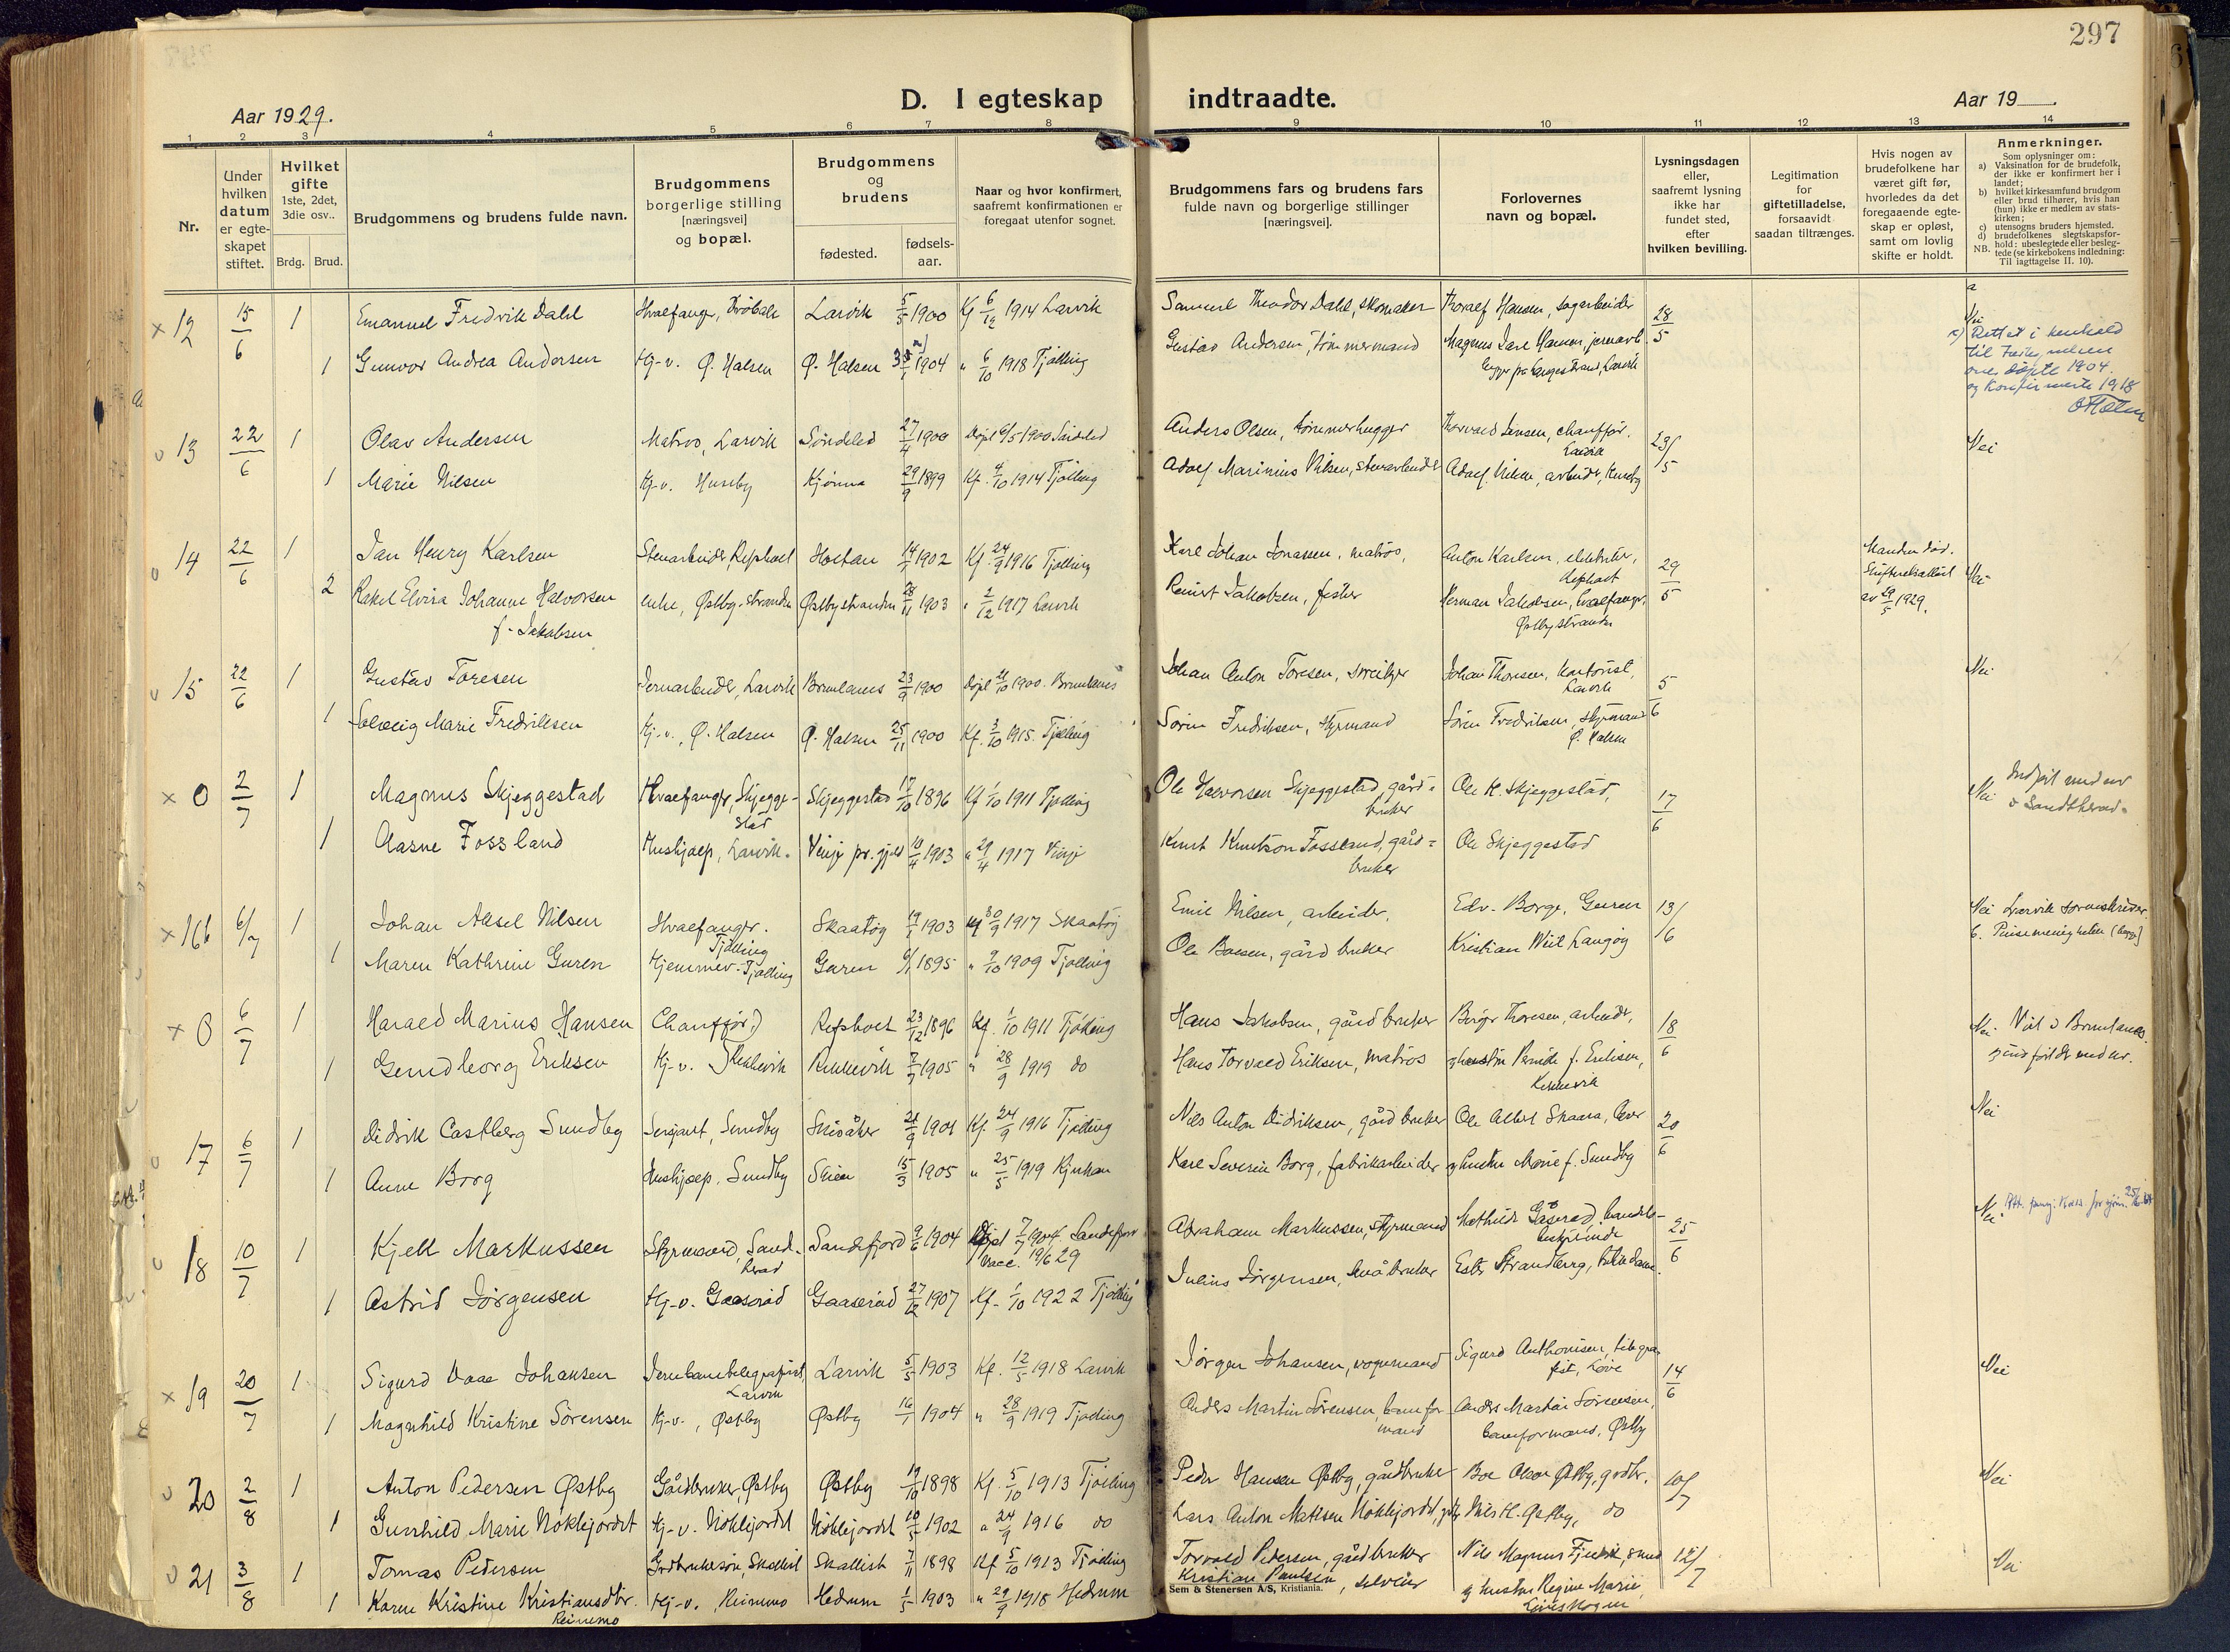 297
D. I egteskap indtraadte.
Aar 1929.
Aar 19
1 2 3 4 5 6 7 8 9 10 11 12 13 14
Nr.
Under hvilken datum er egteskapet stiftet.
Hvilket gifte 1ste, 2det, 3die osv..
Brdg. Brud.
Brudgommens og brudens fulde navn.
Brudgommens borgerlige stilling [næringsvei] og bopæl.
Brudgommens og brudens
fødested. fødsels-aar.
Naar og hvor konfirmert, saafremt konfirmationen er foregaat utenfor sognet.
Brudgommens fars og brudens fars fulde navn og borgerlige stillinger [næringsvei].
Forlovernes navn og bopæl.
Lysningsdagen eller, saafremt lysning ikke har fundet sted, efter hvilken bevilling.
Legitimation for giftetilladelse, forsaavidt saadan tiltrænges.
Hvis nogen av brudefolkene har været gift før, hvorledes da det foregaaende egteskap er opløst, samt om lovlig skifte er holdt.
Anmerkninger.
Som oplysninger om:
a) Vaksination for de brudefolk, der ikke er konfirmert her i landet;
b) hvilket kirkesamfund brudgom eller brud tilhører, hvis han (hun) ikke er medlem av statskirken;
c) utensogns bruders hjemsted.
d) brudefolkenes slegtskapsforhold: ubeslegtede eller beslegtede (se kirkebokens indledning:
NB. Til iagttagelse II. 10).
x 12 15/6 1 Emanuel Fredrik Dahl Hvalfanger, Larvik 5/5 1900 Kf 6/12 1914 Larvik Samuel Theodor Dahl, skomaker Thoralf Hansen, sagarbeider 28/5 Nei
1 Gunvor Andrea Andersen Hj-v. Ø. Halsen Ø. Halsen 1904 " 6/10 1918 Tjølling Gustav Andersen, tømmermand Magnus Jarl Hansen, jernarb.
Langestrand, Larvik
døpte 1904
og konfirmerte 1918
v 13 22/6 1 Olav Andersen Matros, Larvik Søndeled 27/4 1900 Døpt 6/5 1900 Søndeled Anders Olsen, tømmerhugger Thorvald Jensen, chauffør, Larvik 23/5 Nei
1 Marie Nilsen Hj-v. Huseby Kjønnø 29/9 1899 Kf. 4/10 1914 Tjølling Adolf Marinius Nilsen, stenarbeider Adolf Nilsen, arbeider, Huseby
v 14 22/6 1 Jan Henry Karlsen Stenarbeider, Repholt Holtan 1902 Kf. 24/9 1916 Tjølling Karl Johan Jonassen, matros, Anton Karlsen, 29/5 Manden død. Nei
2 Rakel Elvira Johanne Halvorsen enke, Østby-stranden Østbystranden 28/11 1903 " 2/12 1917 Larvik Reinert Jakobsen, fisker Herman Jakobsen, hvalfanger, Østbystranden av 29/5 1929.
f. Jakobsen
v 15 22/6 1 Gustav Toresen Jernarbeider, Larvik Brunlanes 23/9 1900 Døpt 1900. Brunlanes Johan Anton Toresen, Johan Thoresen, kontorist, Larvik 5/6 Nei
1 Solveig Marie Fredriksen Hj-v., Ø. Halsen Ø. Halsen 25/11 1900 Kf. 3/10 1915. Tjølling Søren Fredriksen, styrmand Søren Fredriksen, styrmand Ø. Halsen
x 0 2/7 1 Magnus Skjeggestad Hvalfanger, Skjeggestad Skjeggestad 17/10 1896 Kf 1/10 1911 Tjølling Ole Halvorsen Skjeggestad, gårdbruker Ole H. Skjeggestad, 17/6 Nei
1 Aasne Fossland Hushjælp, Larvik. Vinje pr.gjeld 10/4 1903 " 29/4 1917 Vinje Knut Knutson Fossland, gårdbruker Ole Skjeggestad
x 16b 6/7 1 Johan Aksel Nilsen Hvalfanger. Tjølling Skaatøy 1903 Kf 30/9 1917 Skaatøy Emil Nilsen, arbeider, Edv. Borge, Guren 13/6 Nei Larvik sorenskriver.
1 Maren Kathrine Guren Hjemmev. Tjølling Guren 1895 " 9/10 1909 Tjølling Ole Guren, gårdbruker Kristian Wiil Langøy b. Pinsemenigheten
x 0 6/7 1 Harald Marius Hansen Chauffør Repholt 23/12 1896 Kf. 1/10 1911 Tjølling Hans Jakobsen, gårdbruker Birger Thoresen, arbeider, 18/6 Nei. Viet i Brunlanes
1 Gundborg Eriksen Hj-v. 1905 " 28/9 1919 do Hans Torvald Eriksen, matros og hustru f. Eriksen,
v 17 6/7 1 Didrik Castberg Sundby Sersjant, Sundby 21/9 1901 Kf. 24/9 1916 Tjølling Nils Anton Didriksen, gårdbruker Ole Albert Skaara, 20/6 Nei
1 Anne Borg Hushjælp, Sundby Skien 15/3 1905 " 25/5 1919 Rjukan Karl Severin Borg, fabrikarbeider og hustru Marie f. Sundby
v 18 10/7 1 Kjell Markussen Styrmand, Sandeherad Sandefjord 9/6 1904 Døpt 7/7 1904. Sandefjord Vacc. 19/6 29 Abraham Markussen, styrmand Mathilde Gåserød, 25/6 Nei
1 Astrid Jørgensen Hj-v. Gaaserød Gaaserød 27/12 1907 Kf. 1/10 1922 Tjølling Julius Jørgensen, småbruker Ester Strandberg,
x 19 20/7 1 Sigurd Vaae Johansen Jernbanetelegrafist, Larvik Larvik 5/5 1903 Kf. 12/5 1918 Larvik Jørgen Johansen, vognmand Sigurd Anthonisen, telegrafist, 14/6 Nei
1 Magnhild Kristine Sørensen Hj-v., Østby Østby 16/1 1904 " 28/9 1919 Tjølling Anders Martin Sørensen, baneformand Anders Martin Sørensen, baneformand, Østby
v 20 2/8 1 Anton Pedersen Østby Gårdbruker, Østby Østby 19/10 1898 Kf. 5/10 1913 Tjølling Peder Hansen Østby, gårdbruker Østby, grdbr. 10/7 Nei
1 Gunhild Marie Nøklejordet Hj-v. Nøklejordet Nøklejordet 10/5 1902 " 24/9 1916 do Lars Anton Mathisen Nøklejordet, Nils H. Østby, do
v 21 3/8 1 Tomas Pedersen Grdbrukersøn, Skallist Skallist 7/11 1898 Kf 5/10 1913 Tjølling Torvald Pedersen, gårdbruker Nils Magnus 12/7 Nei
1 Karen Kristine Kristiansdtr. Hj-v., Reinemo Hedrum 1/5 1903 " 29/9 1918 Hedrum Kristian Paulsen, og hustru Regine Marie,
Reinemo
Sem & Stenersen A/S, Kristiania.